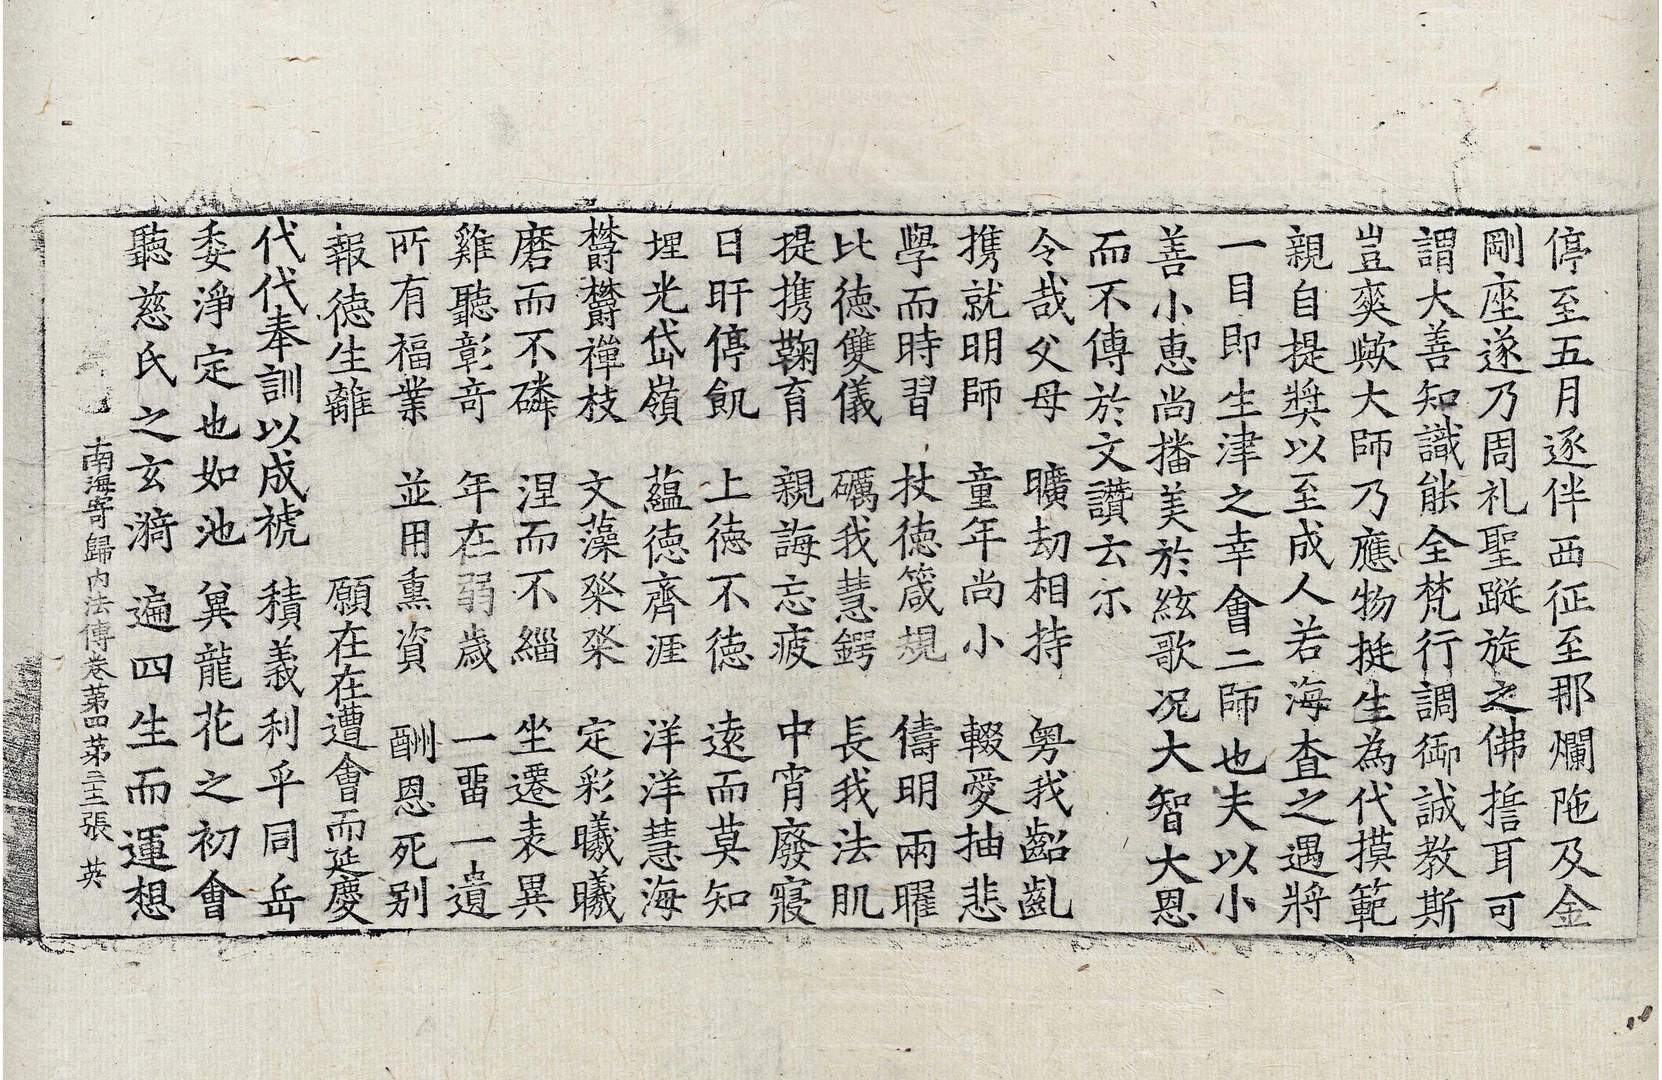 停至五月逐伴西征至那爛陁及金
剛座遂乃周礼聖蹤旋之佛誓耳可
謂大善知識能全梵行調御誠教斯
豈爽歟大師乃應物挺生為代摸範
親自提獎以至成人若海查之遇將
一目即生津之幸會二師也夫以小
善小恵尚播美於絃歌况大智大恩
而不傳於文讚云尒
令哉父母 曠劫相持 粤我齠齓
携就明師 童年尚小 輟愛抽悲
學而時習 杖徳箴規 儔明兩曜
比徳雙儀 礪我慧鍔 長我法肌
提携鞠育 親誨忘疲 中宵廢寢
日旰停飢 上徳不徳 遠而莫知
埋光岱嶺 蘊徳齊涯 洋洋慧海
欝欝禪枝 文藻粲粲 定彩曦曦
磨而不磷 涅而不緇 坐遷表異
雞聽彰竒 年在弱歲 一畱一遺
所有福業 並用熏資 酬恩死别
報徳生離 願在在遭會而延慶
代代奉訓以成褫 積義利乎同岳
委淨定也如池 兾龍花之初會
聽慈氏之玄漪 遍四生而運想
南海寄歸内法傳卷第四 第三十二張 英